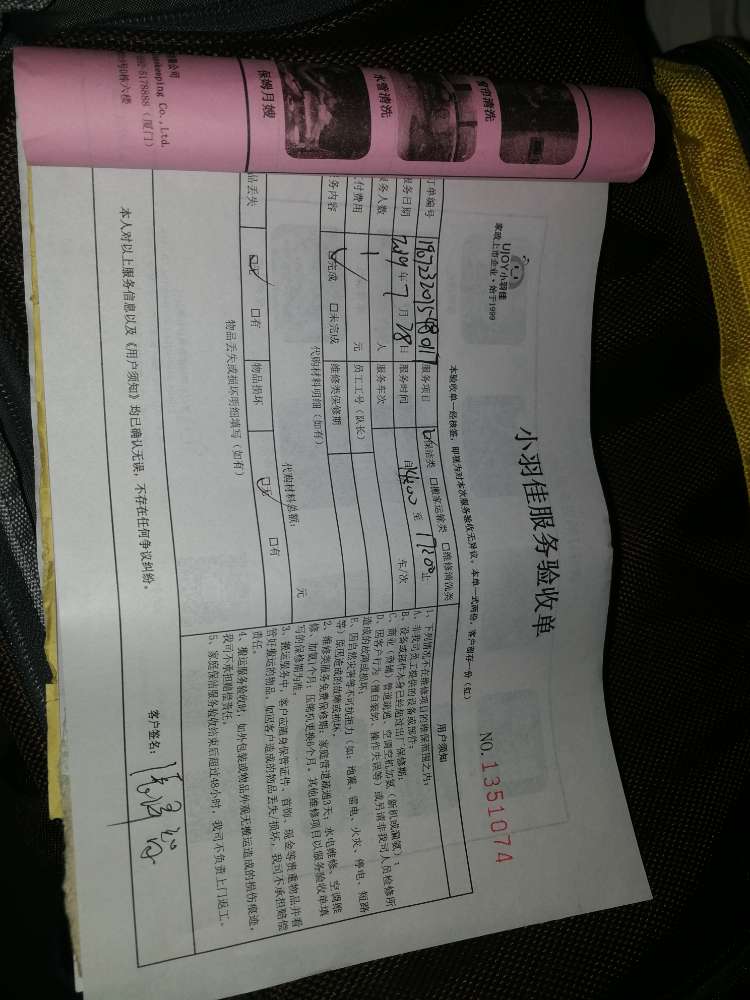 窗帘清洗
水管清洗
保姆月嫂
限公司
Housekeeping Co.,Ltd.
592-5178888（厦门）
号8栋六楼
UJOY小羽佳
家政上市企业·始于1999
小羽佳服务验收单
NO.1351074
本验收单一经接签，即视为对本次服务验收无异议。本单一式两份，客户留存一份（红）
订单编号 190723201548017 服务项目 ☑保洁类 □搬家运输类 □维修清洗类
服务日期 2019年7月28日 服务时间 自14:00 至 17:00止
服务人数 1 人 服务车次 车/次
支付费用 元 员工工号（队长）
服务内容 ☑完成 □未完成 维修类保修期
代购材料明细（如有）
代购材料总额： 元
物品丢失 ☑无 □有 物品损坏 ☑无 □有
物品丢失或损坏明细填写（如有）
用户须知
1、下列情况不在维修项目的维保范围之内：
A、非我司员工提供的设备或部件；
B、设备或部件本身已经超过出厂保修期；
C、商业（劳铺）管道疏通、空调空机加氨（新机或漏氨）；
D、因客户行为（擅自装卸、操作失误等）或另请非我司人员检修所
造成的故障或损坏；
E、因自然灾害等不可抗拒力（如：地震、雷电、火灾、停电、短路
等）原因造成的故障或损坏。
2、维修类服务免费保修期：家庭管道疏通3天，水电维修、空调维
修、加氨1个月；压缩机更换6个月，其他维修项目以服务验收单填
写的保修期为准。
3、搬运服务中，客户应随身保管证件、首饰、现金等贵重物品并看
管好搬运的物品，如因客户造成的物品丢失/损坏，我司不承担赔偿
责任。
4、搬运服务验收时，如外包装或物品外观无搬运造成的损伤痕迹，
我司不承担赔偿责任。
5、家庭保洁服务验收结束后超过48小时，我司不负责上门返工。
本人对以上服务信息以及《用户须知》均已确认无误，不存在任何争议纠纷。
客户签名：